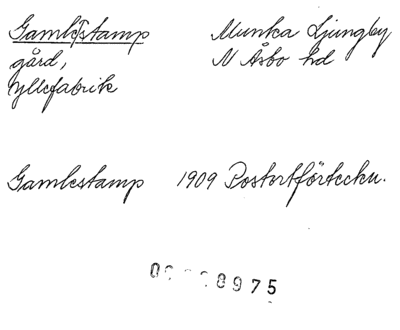 Gamlestamp Munka Ljungby
gård, N Åsbo hd
yllefabrik
Gamlestamp 1909 Postortförteckn.
8975